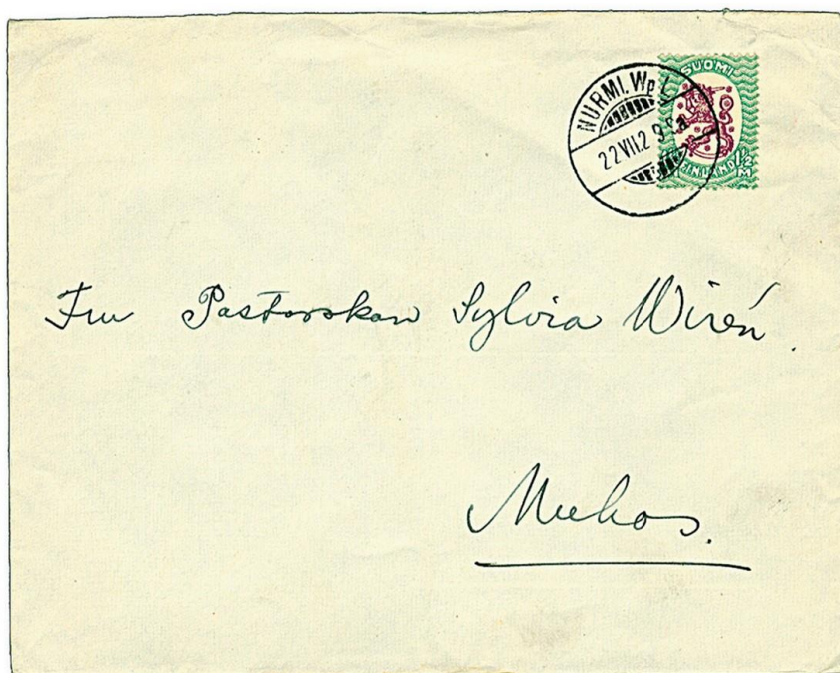 NURMI. Wp.L.
22 VII.2 9
SUOMI
FINLAND 1½ M
Fru Pastorskan Sylvia Wirén.
Muhos.